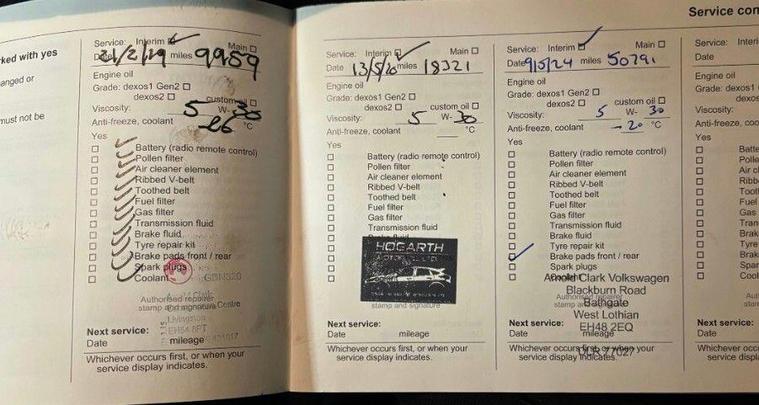 Service con
ked with yes
anged or
must not be
Service: Interim ☑ Main ☐
Date 21/2/19 miles 9959
Engine oil
Grade: dexos1 Gen2 ☐
dexos2 ☐ custom oil ☐
Viscosity: 5 W- 30
Anti-freeze, coolant -26 °C
Yes
Battery (radio remote control)
Pollen filter
Air cleaner element
Ribbed V-belt
Toothed belt
Fuel filter
Gas filter
Transmission fluid
Brake fluid
Tyre repair kit
Brake pads front / rear
Spark plugs
Coolant
GBN320
Authorised repairer
stamp and signature
Centre
Livingston
EH54 8PT
Next service:
Date mileage
Whichever occurs first, or when your
service display indicates.
Service: Interim ☑ Main ☐
Date 13/5/20 miles 18321
Engine oil
Grade: dexos1 Gen2 ☐
dexos2 ☐ custom oil ☐
Viscosity: 5 W- 30
Anti-freeze, coolant °C
Yes
Battery (radio remote control)
Pollen filter
Air cleaner element
Ribbed V-belt
Toothed belt
Fuel filter
Gas filter
Transmission fluid
HOGARTH
stamp and signature
Next service:
Date mileage
Whichever occurs first, or when your
service display indicates.
Service: Interim ☑ Main ☐
Date 9/5/24 miles 50791
Engine oil
Grade: dexos1 Gen2 ☐
dexos2 ☐ custom oil ☐
Viscosity: 5 W- 30
Anti-freeze, coolant -20 °C
Yes
Battery (radio remote control)
Pollen filter
Air cleaner element
Ribbed V-belt
Toothed belt
Fuel filter
Gas filter
Transmission fluid
Brake fluid
Tyre repair kit
Brake pads front / rear
Spark plugs
Coolant
Arnold Clark Volkswagen
Blackburn Road
Bathgate
West Lothian
EH48 2EQ
Authorised repairer
Next service:
Date mileage
Whichever occurs first, or when your
service display indicates.
Service: Interi
Date
Engine oil
Grade: dexos
dexos
Viscosity:
Anti-freeze, co
Yes
Batte
Polle
Air cl
Ribb
Toot
Fuel
Gas
Tran
Brak
Tyre
Brak
Spar
Coo
stam
Next service:
Date
Whichever occ
service disp